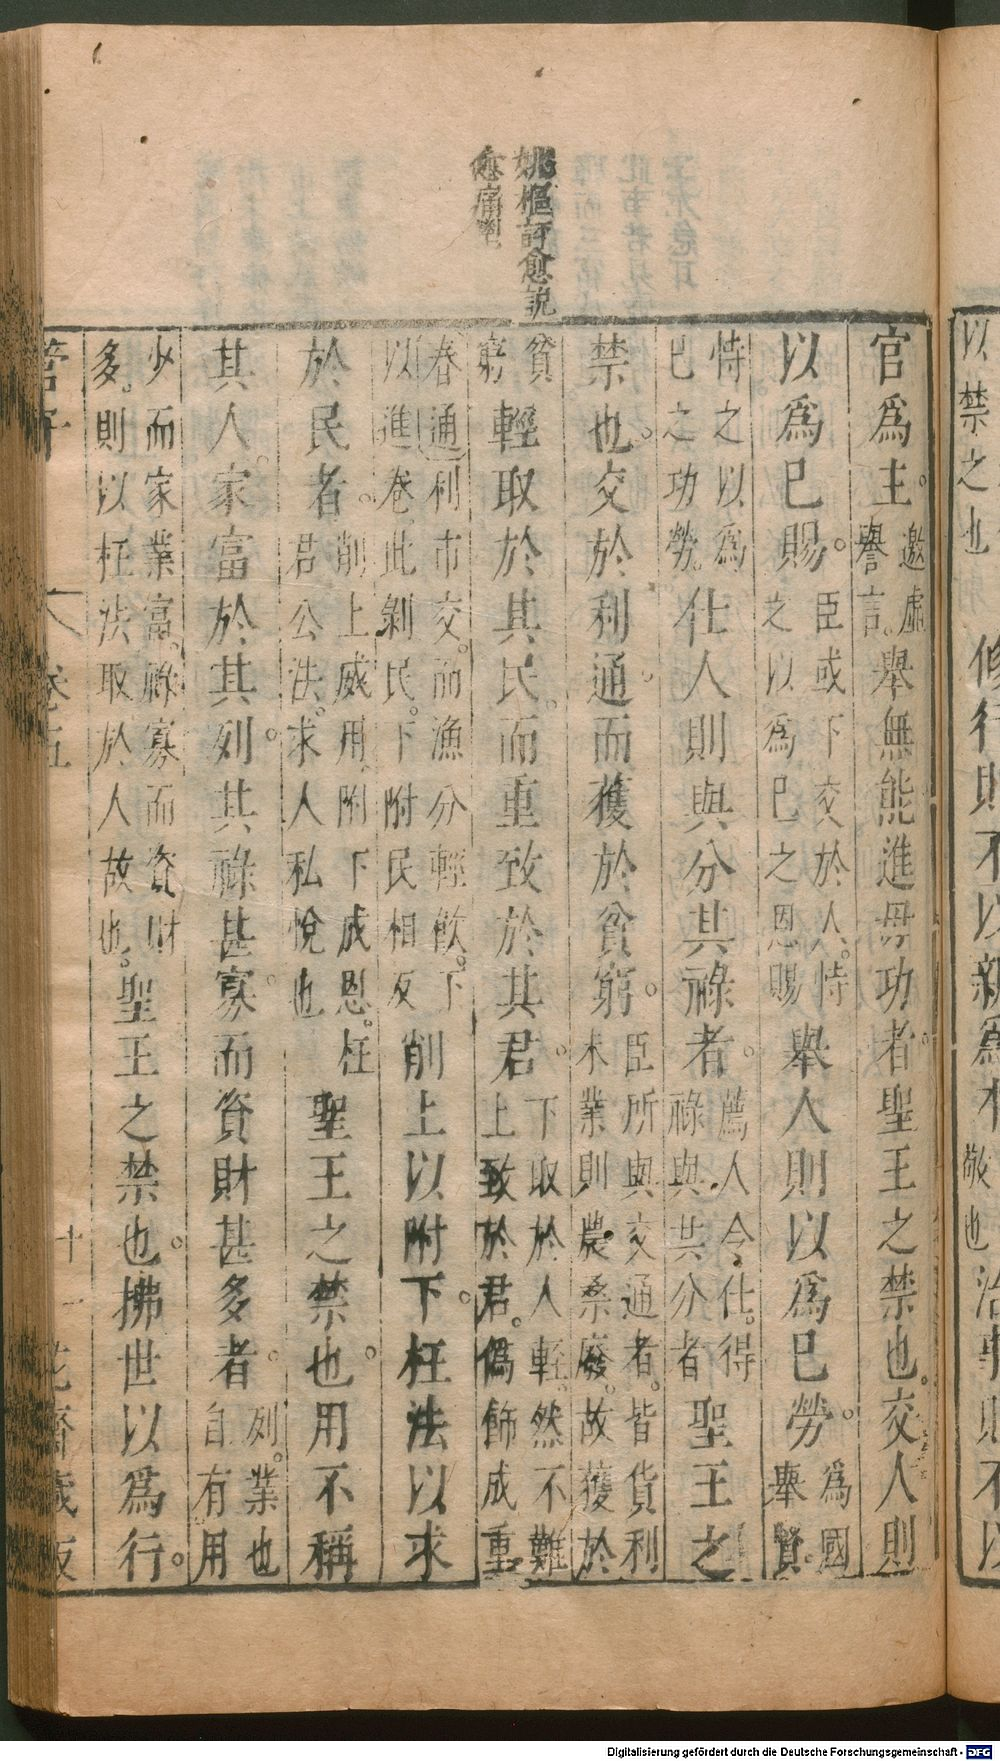 以禁之也 修行則不以親為本 敬也 治事則不以
姚樞評愈說
愈痛聖
官為主。邀虛譽言。舉無能進毋功者。聖王之禁也。交人則
以為已賜。臣或下交於人。恃之以為已之恩賜 舉人則以為已勞。為國舉賢。
恃之以為已之功勞 仕人則與分其祿者。薦人令仕。得祿與共分者 聖王之
禁也。交於利通。而獲於貧窮。臣所與交通者。皆貨利末業則農桑廢。故獲於
貧窮 輕取於其民。而重致於其君。下取於人輕。然不難上致於君。僞飾成重
春通利市交。而漁分輕斂。下以進卷此剝民。下附民相反 削上以附下。枉法以求
於民者。削上威用。附下成恩。枉君公法。求人私悅也 聖王之禁也。用不稱
其人。家富於其列。其祿甚寡。而資財甚多者。列。業也自有用
少而家業富。祿寡而資財多。則以枉法取於人故也。聖王之禁也。拂世以為行。
管子 卷五 十一 花齋藏板
Digitalisierung gefördert durch die Deutsche Forschungsgemeinschaft - DFG